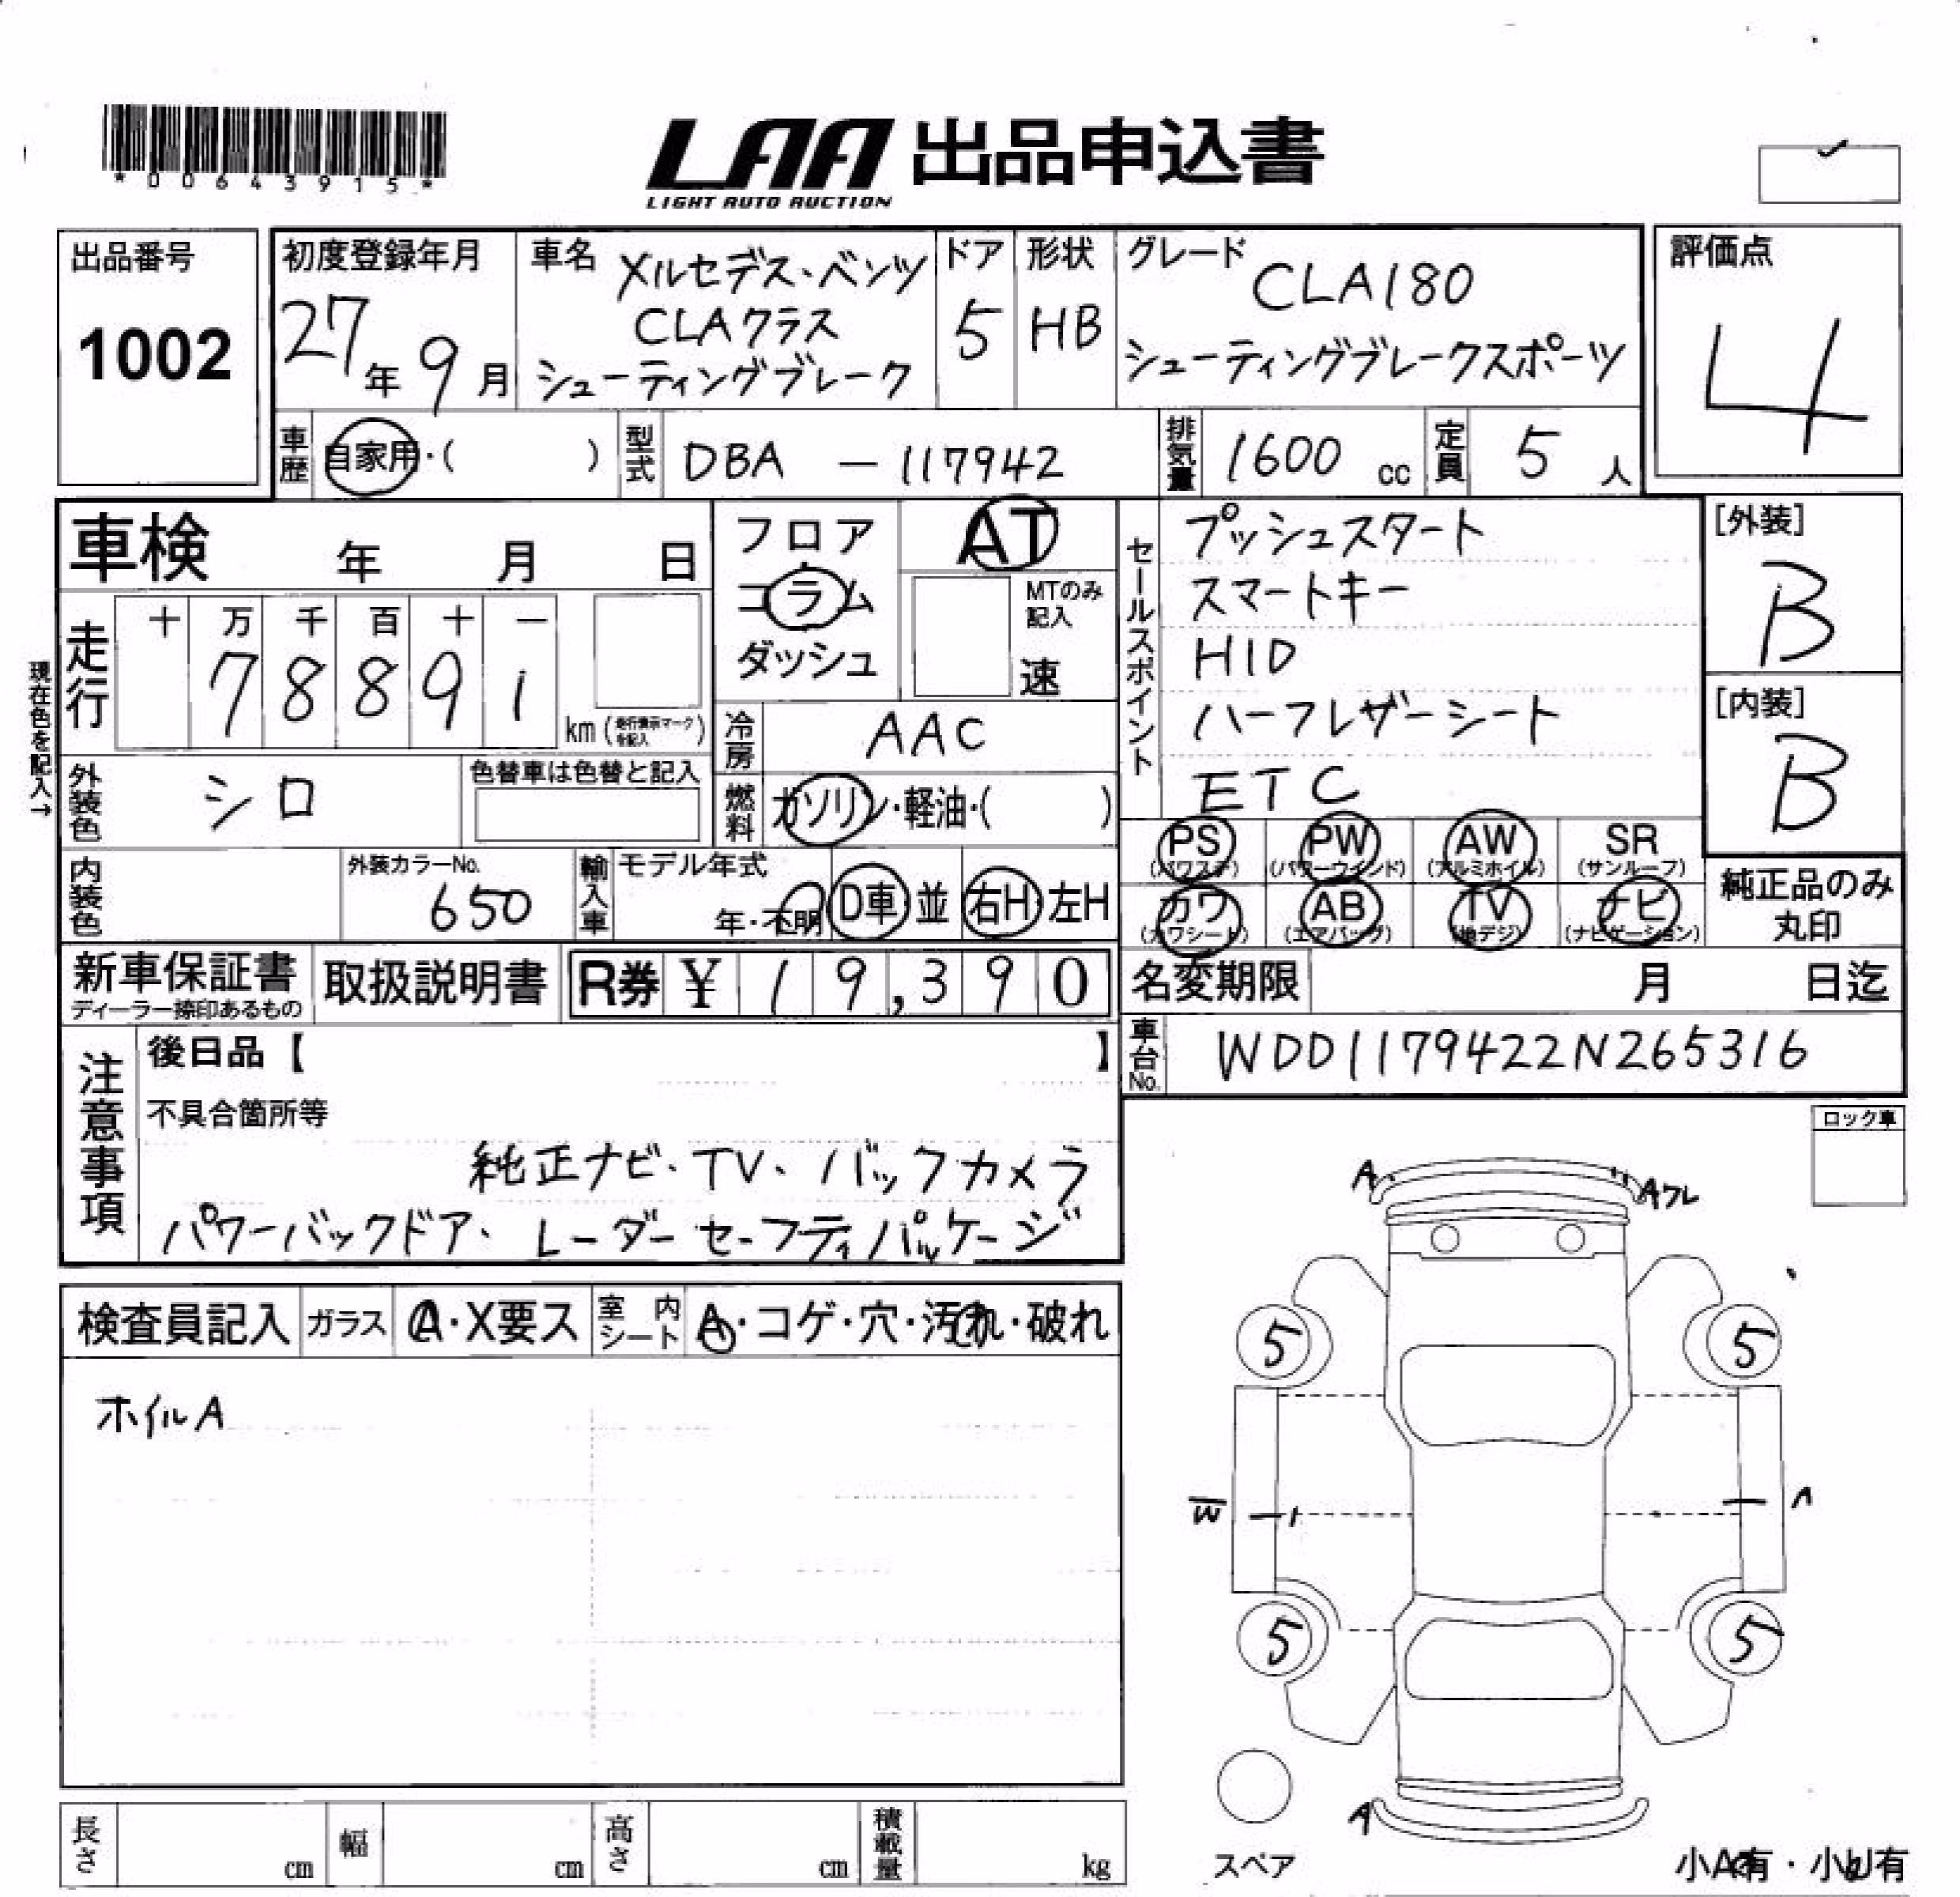 *00643915*
LAA 出品申込書
LIGHT AUTO AUCTION
出品番号
1002
初度登録年月
27年9月
車名
メルセデス・ベンツ
CLAクラス
シューティングブレーク
ドア
5
形状
HB
グレード
CLA180
シューティングブレークスポーツ
評価点
4
車歴
自家用・( )
型式
DBA — 117942
排気量
1600 cc
定員
5人
車検 年 月 日
フロア
コラム
ダッシュ
AT
MTのみ
記入
速
セールスポイント
プッシュスタート
スマートキー
HID
ハーフレザーシート
ETC
[外装]
B
[内装]
B
現在色を記入→
走行
十 万 千 百 十 一
7 8 8 9 1
km
冷房
AAC
外装色
シロ
色替車は色替と記入
燃料
ガソリン・軽油・( )
PS PW AW SR
(パワステ) (パワーウインド) (アルミホイル) (サンルーフ)
カワ AB TV ナビ
(カワシート) (エアバッグ) (地デジ) (ナビゲーション)
純正品のみ
丸印
内装色
外装カラーNo.
650
輸入車
モデル年式
年・不明
D車 並
右H・左H
新車保証書
ディーラー捺印あるもの
取扱説明書
R券 ¥ 19,390
名変期限 月 日迄
車台No.
WDD1179422N265316
注意事項
後日品【 】
不具合箇所等
純正ナビ・TV、バックカメラ
パワーバックドア、レーダーセーフティパッケージ
ロック車
A
Aワレ
検査員記入
ガラス
A・X要ス
室内
シート
A・コゲ・穴・汚れ・破れ
ホイルA
5
5
W
5
5
A
スペア
小A有・小U有
長さ cm
幅 cm
高さ cm
積載量 kg